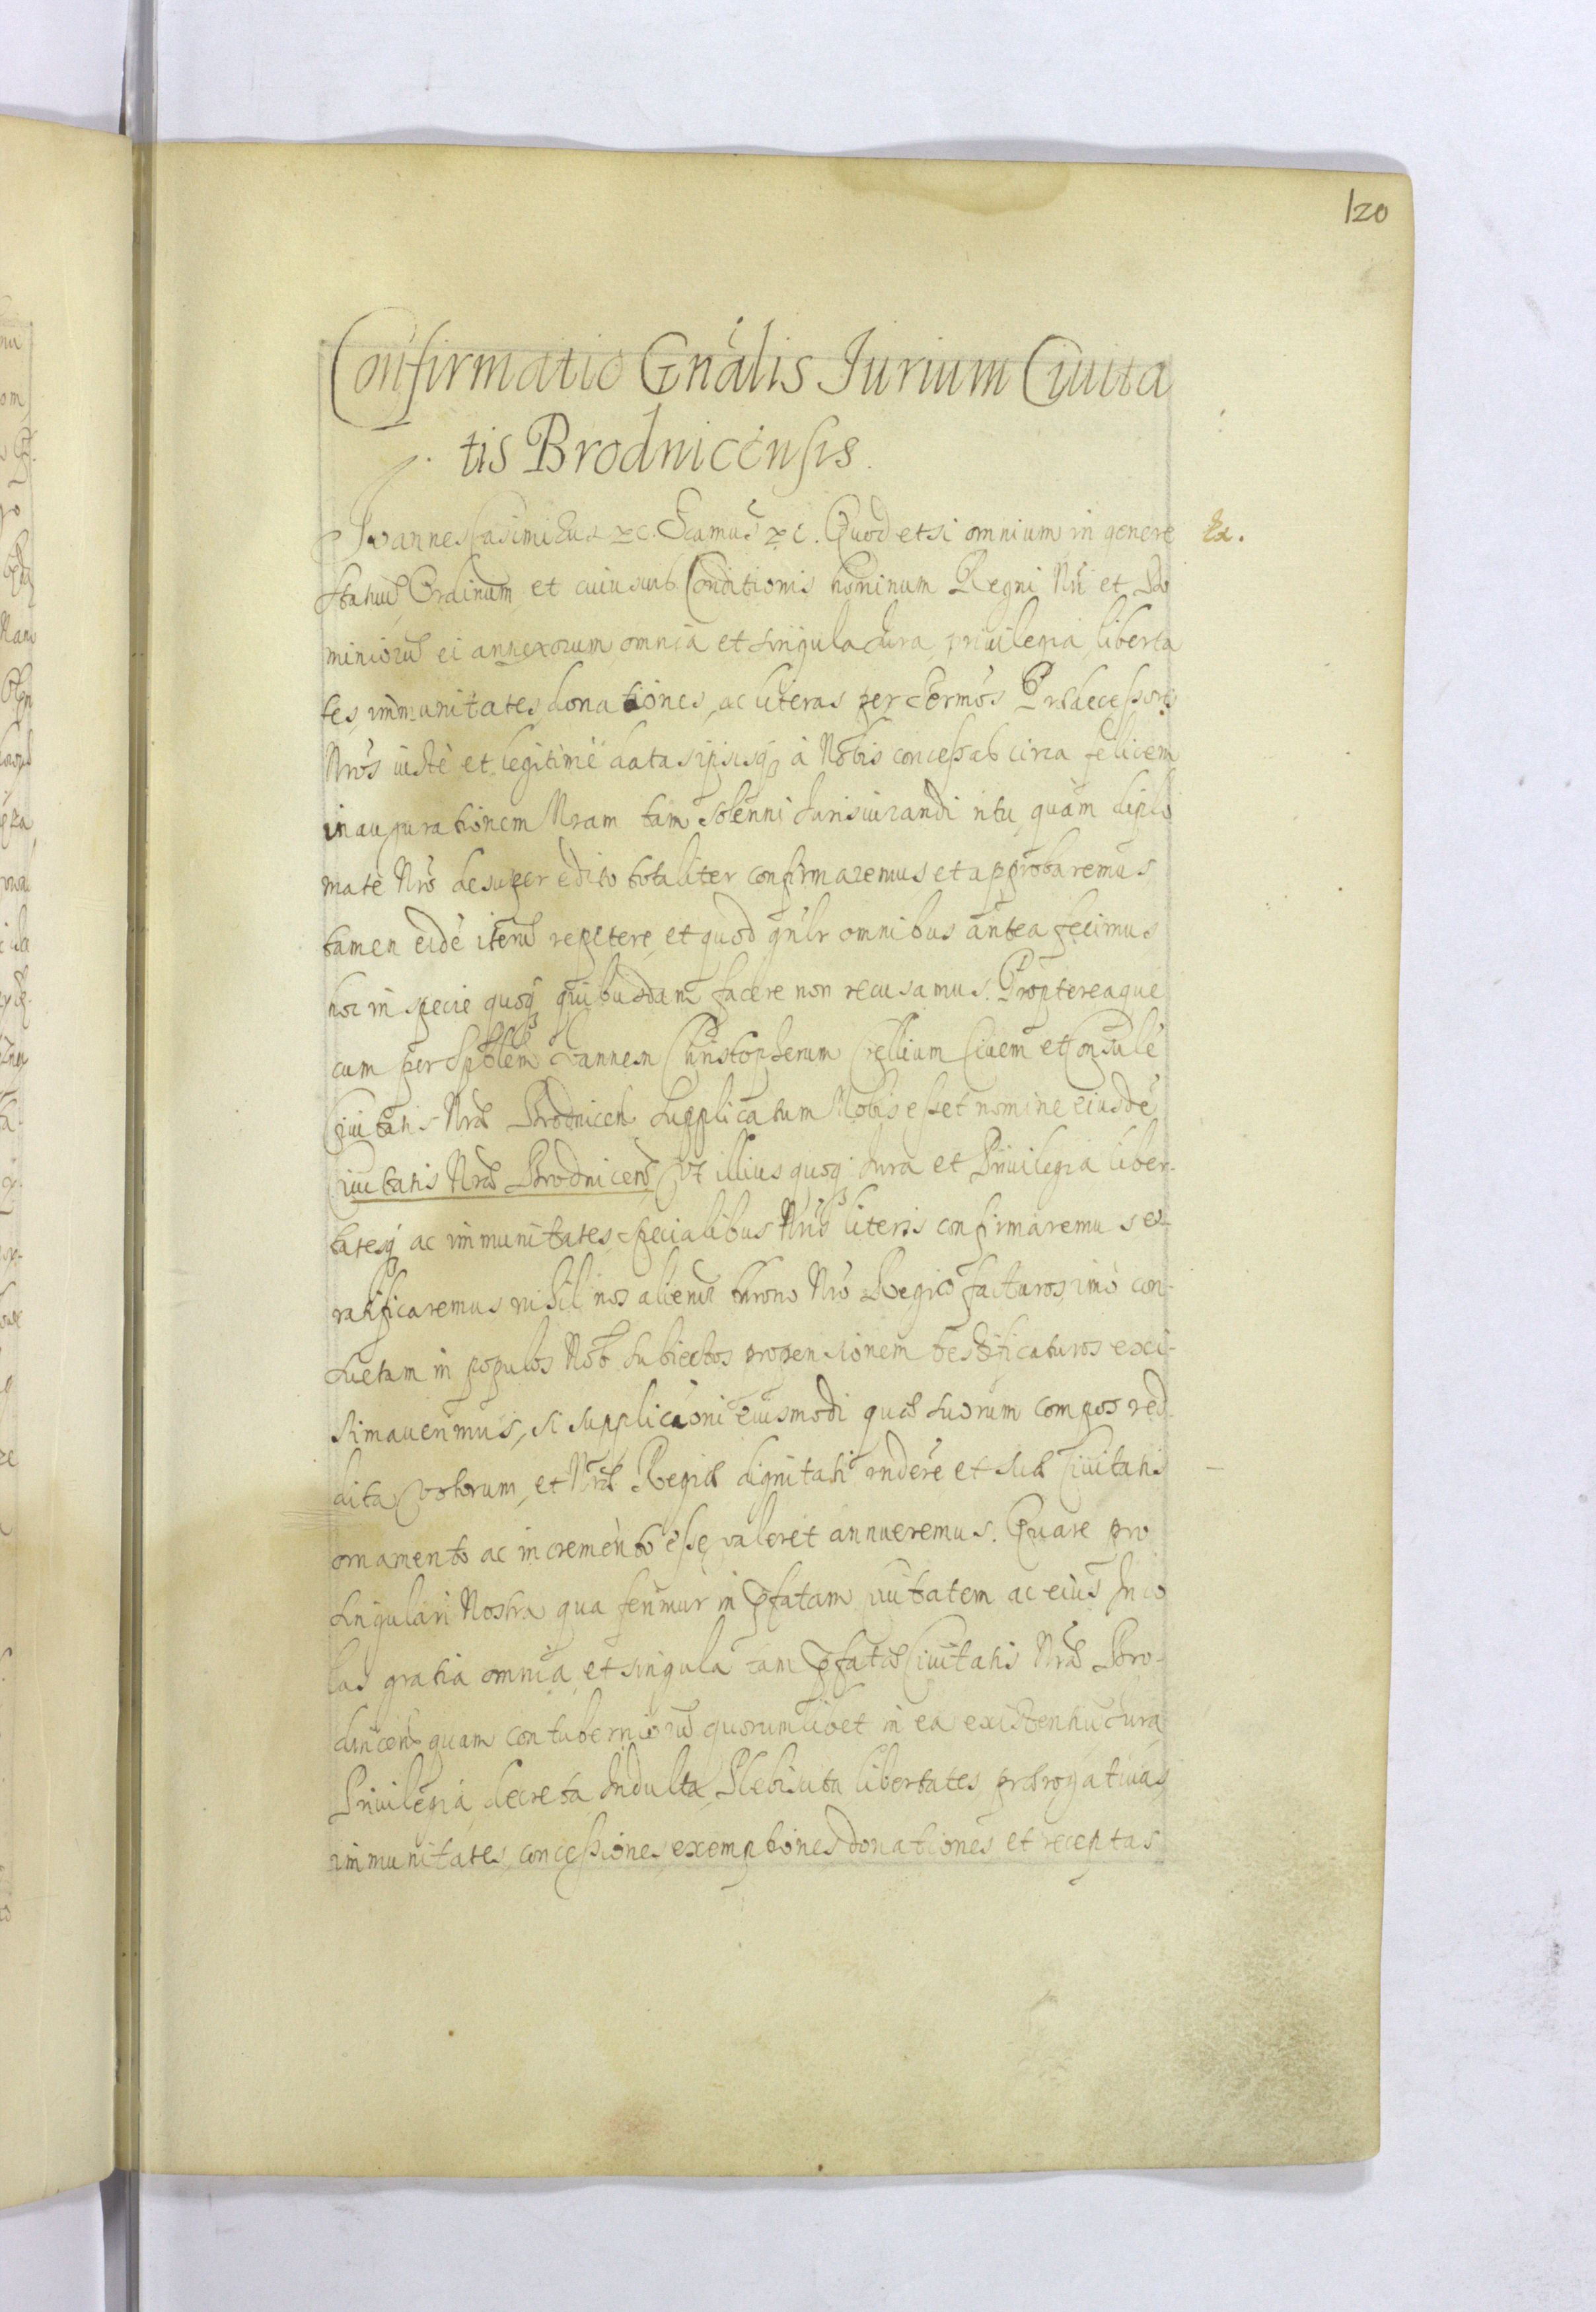 120
Confirmatio Gnālis Iurium Ciuita
tis Brodnicensis.
Ioannes Casimirus &c. Scamus &c. Quod etsi omnium in genere
Statuū Ordinum et cuiusuis Conditionis hominum Regni Nri et Do
miniorū ei annexorum omnia et singula Iura, priuilegia, liberta
tes, immunitates, donationes, ac literas per Sermos Prædecessores
Nros iustè et legitimè datas ipsisq; à Nobis concessas circa felicem
inaugurationem Nram tam solenni Iurisiurandi ritu, quàm diplo
mate Nro desuper edito totaliter confirmaremus et approbaremus,
tamen eidē iterū repetere, et quod gnlr omnibus antea fecimus,
hoc in specie quoq; quibusdam facere non recusamus. Proptereaque
cum per Spblem Ioannem Christopherum Crellium Ciuem et Consulē
Ciuitatis Nræ Brodnicen Supplicatum Nobis esset nomine eiusdē
Ciuitatis Nræ Brodnicens Vt illius quoq; Iura et Priuilegia liber-
tatesq; ac immunitates specialibus Nris literis confirmaremus et
ratificaremus nihil nos alienū throno Nro Regio facturos, imò con-
suetam in populos Nob subiectos propensionem testificaturos exi-
stimauerimus, si supplicaoni eiusmodi quæ suorum compos red-
dita votorum, et Nræ Regiæ dignitati indere et suæ Ciuitatis
ornamento ac incremento esse valeret annueremus. Quare pro
singulari Nostra qua ferimur in pfatam ciuitatem ac eius Inco
las gratia omnia et singula tam pfatæ Ciuitatis Nræ Bro-
dnicens quam contuberniorū quorumlibet in ea existentiū Iura
Priuilegia, decreta Indulta, Plebiscita libertates, prærogatiuas,
immunitates, concessiones, exemptiones donationes et receptas